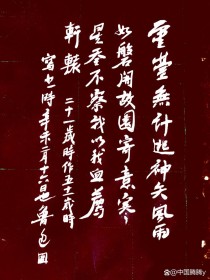 靈臺無計逃神矢風雨
如磐闇故園寄意寒
星荃不察我以我血薦
軒轅 二十一歲時作五十一歲時
寫之時辛未二月十六日也魯迅